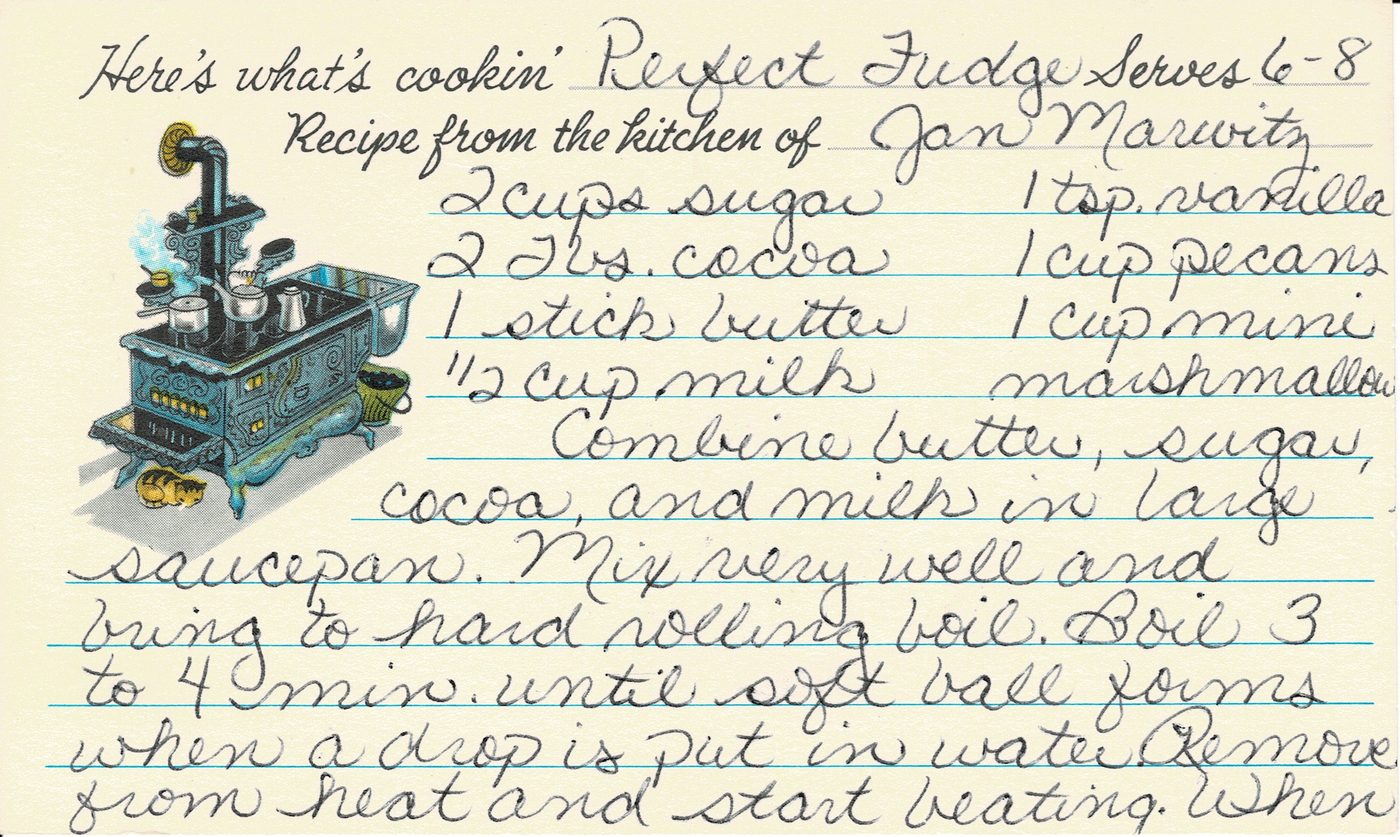 Here's what's cookin' Perfect Fudge Serves 6-8
Recipe from the kitchen of Jan Marwitz
2 cups sugar 1 tsp. vanilla
2 Tbs. cocoa 1 cup pecans
1 stick butter 1 cup mini
1/2 cup milk marshmallow
Combine butter, sugar,
cocoa, and milk in large
saucepan. Mix very well and
bring to hard rolling boil. Boil 3
to 4 min. until soft ball forms
when a drop is put in water. Remove
from heat and start beating. When